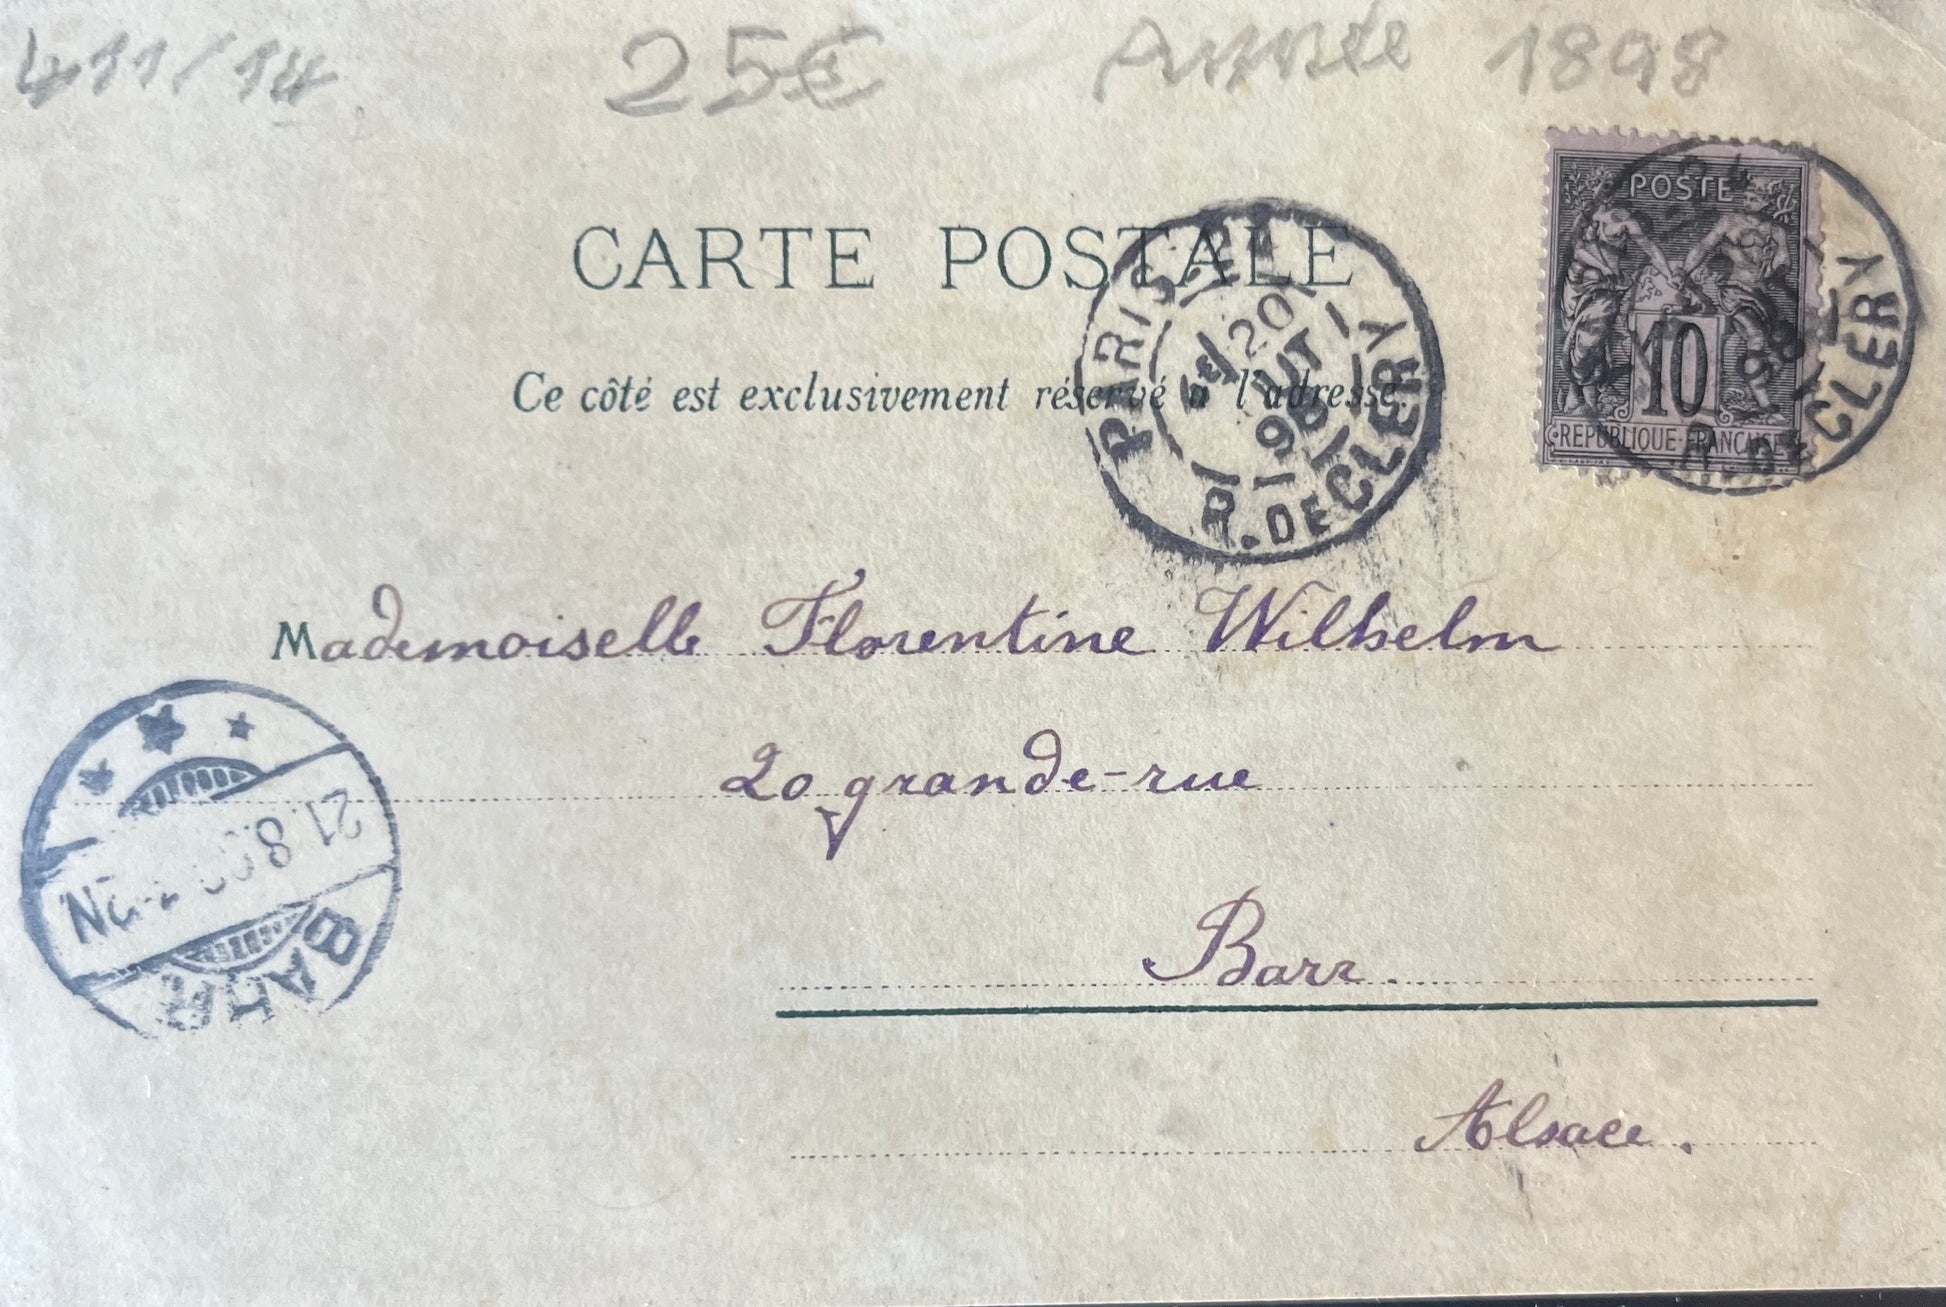 411/14 25€ Année 1898
POSTE
10
REPUBLIQUE FRANCAISE
R. DE CLERY
98
CARTE POSTALE
PARIS
20
98
R. DE CLERY
Ce côté est exclusivement réservé à l'adresse.
Mademoiselle Florentine Wilhelm
20 grande-rue
Barr.
Alsace.
21 8
N
BARR